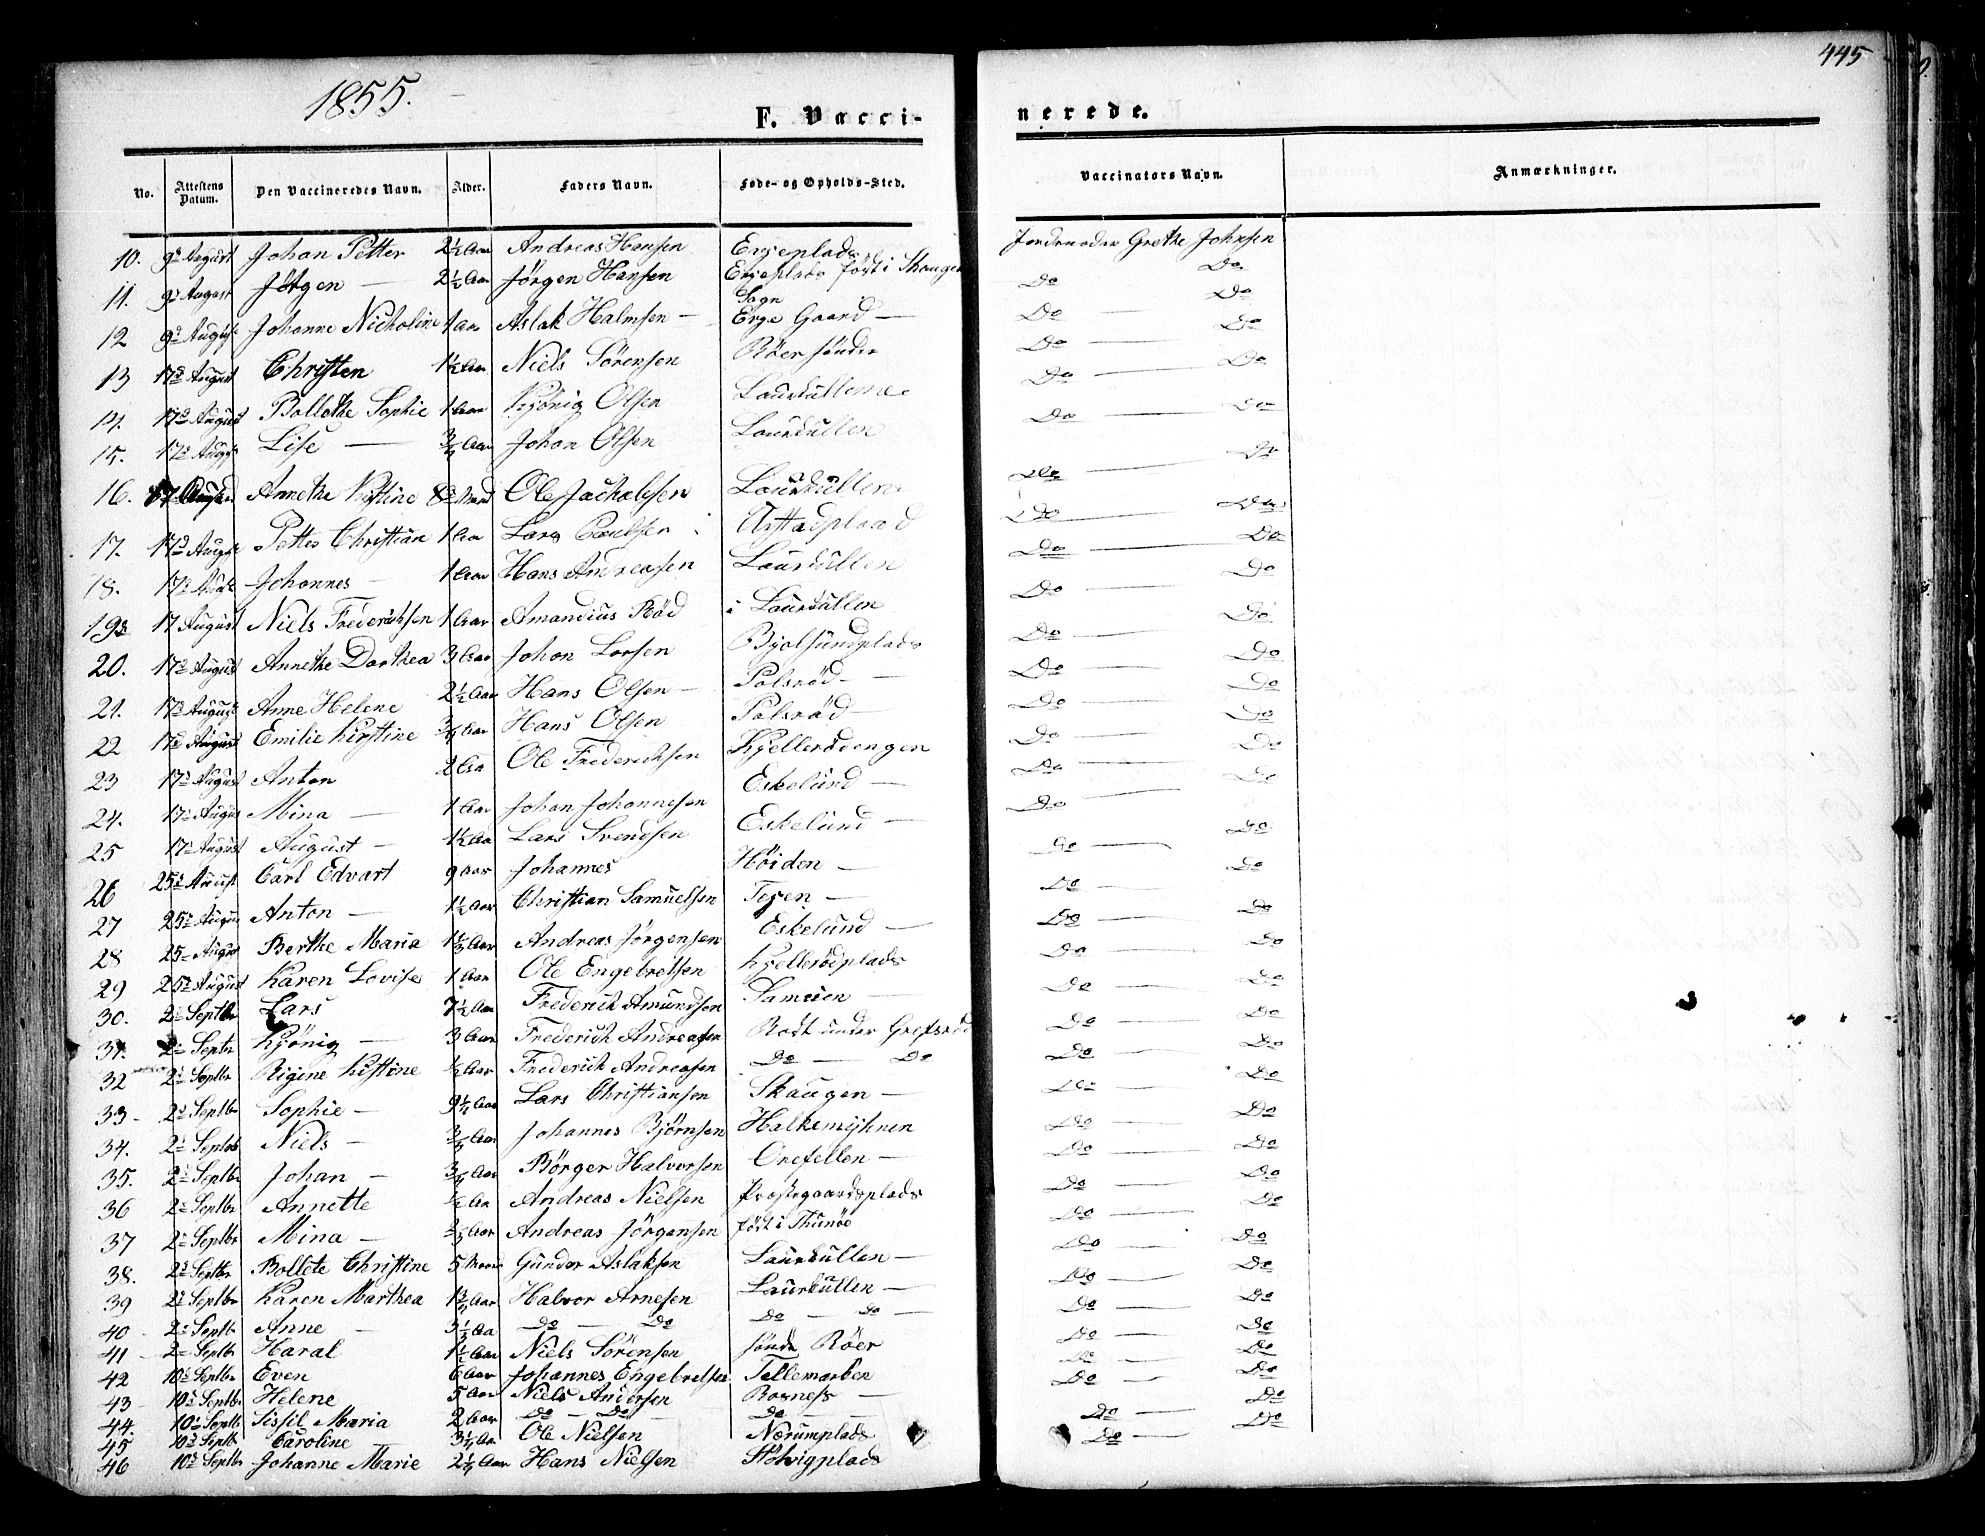 1855.
445
F. Vacci-
nerede.
No.
Attestens Datum.
Den Vaccineredes Navn.
Alder.
Faders Navn.
Føde- og Opholds-Sted.
Vaccinators Navn.
Anmærkninger.
10. 9de August Johan Petter 2½ Aar Andreas Hansen Ergeplads Jordmoder Grethe Johnsen
11. 9de August Jörgen — 2½ Aar Jörgen Hansen Ergeplads född i Skauger Sogn Do Do
12 9de August Johanne Nicholine 1 Aar Aslak Halmsen — Erge Gaard — Do Do
13 17de August Christen 1½ Aar Niels Sörensen Röer söndre Do Do
14. 17de August Bollethe Sophie 1 Aar Kjönig Olsen Laurkullene Do Do
15. 17de August Lise — ¾ Aar Johan Olsen Laurkullen Do Do
16. 17 August Annethe Kirstine Ole Jachobsen Laurkullen Do Do
17. 17de August Petter Christian 1 Aar Lars Paulsen Do Do
18. 17de August Johannes — 1 Aar Hans Andreasen Laurkullen Do Do
19 17 August Niels Frederichsen 1 Aar Amandius Röd i Laurkullen Do Do
20. 17de August Annethe Dorthea 3 Aar Johan Larsen Bjolsundplads Do Do
21. 17de August Anne Helene 2½ Aar Hans Olsen — Palsröd — Do Do
22 17de August Emilie Kirstine ¾ Aar Hans Olsen Palsröd — Do Do
23 17de August Anton 2 Aar Ole Frederichsen Kjellerödengen Do Do
24. 17de August Mina — 1 Aar Johan Johannesen Eskelund — Do Do
25 17de August August — 1½ Aar Lars Svendsen Eskelund — Do Do
26 25de August Carl Edvart 9 Aar Johannes Höiden — Do Do
27 25de August Anton — 1½ Aar Christian Samuelsen Do Do
28 25de August Berthe Maria Andreas Jörgensen Eskelund — Do Do
29 25de August Karen Lovise 1 Aar Ole Engebretsen Kjellerödplads Do Do
30. 2de Septbr Lars 7½ Aar Frederich Amundsen Do Do
31. 2de Septbr Kjönig — 3 Aar Frederich Andreasen Rödt under Grefsröd Do Do
32 2de Septbr Rigine Kirstine ½ Aar Frederich Andreasen Do — Do Do Do
33 - 2de Septbr Sophie — 9¼ Aar Lars Christiansen Skaugen — Do Do
34. 2de Septbr Niels — ¾ Aar Johannes Björnsen Halkemyhren Do Do
35. 2de Septbr Johan — ¾ Aar Börger Halvorsen Orefellen — Do Do
36 2de Septbr Annette ½ Aar Andreas Nielsen Prestegaardsplads Do Do
37 2de Septbr Mina — Andreas Jörgensen född i Thunöe Do Do
38. 2de Septbr Bollete Christine 5 Gunder Aslaksen Laurkullen — Do Do
39 2de Septbr Karen Marthea 1¾ Aar Halvor Arnesen Laurkullen — Do Do
40 2de Septbr Anne — 3½ Aa Do — Do Do — Do — Do Do
41 2de Septbr Haral 1½ Aar Niels Sörensen sönde Röer Do Do
42 10de Septbr Even 6 Aar Johannes Engebretsen Tallemarken Do Do
43 10de Septbr Helene 5 Aar Niels Andersen Rosness — Do Do
44. 10de Septbr Sissil Maria 2 Aar Do — Do — Do — Do Do
45. 10de Septbr Caroline 3¼ Aar Ole Nielsen Nærumplads
46 10de Septbr Johanne Marie 2¼ Aar Hans Nielsen Stövigplads